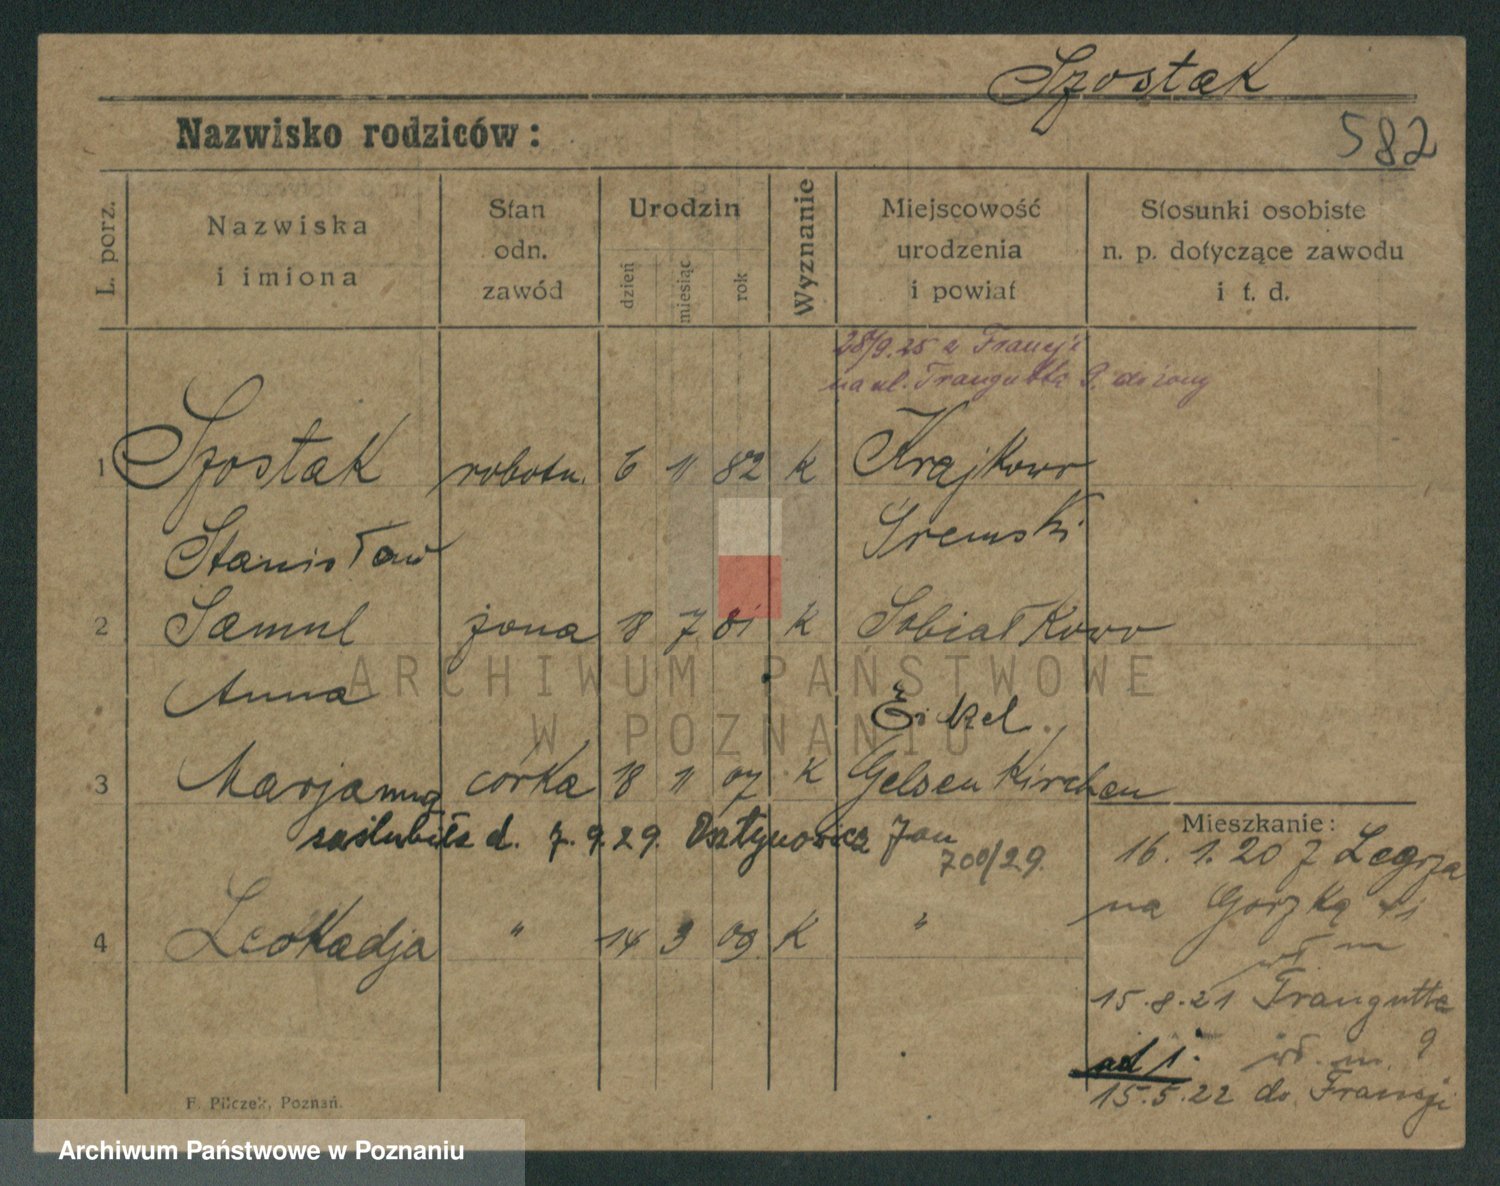 Szostak
582
Nazwisko rodziców:
L. porz.
Nazwiska
i imiona
Stan
odn.
zawód
Urodzin
dzień
miesiąc
rok
Wyznanie
Miejscowość
urodzenia
i powiat
Stosunki osobiste
n. p. dotyczące zawodu
i t. d.
28/9.25 z Francji
na ul. Traugutta 9. do żony
1 Szostak robotn. 6 11 82 K Krajkowo
Stanisław Sremski
2 Samul żona 18 7 81 K Sobiałkowo
Anna
Eikel
3 Marjanna córka 18 11 07 K Gelsenkirchen
zaślubiła d. 7. 9. 29. Osztynowicz Jan
700/29.
4 Leokadja " 14 3 09 K "
Mieszkanie:
16. 1. 20 z
na
15.8.21 Traugutta
9
ad 1.
15.5.22 do Francji
F. Pilczek, Poznań.
ARCHIWUM PAŃSTWOWE
W POZNANIU
Archiwum Państwowe w Poznaniu